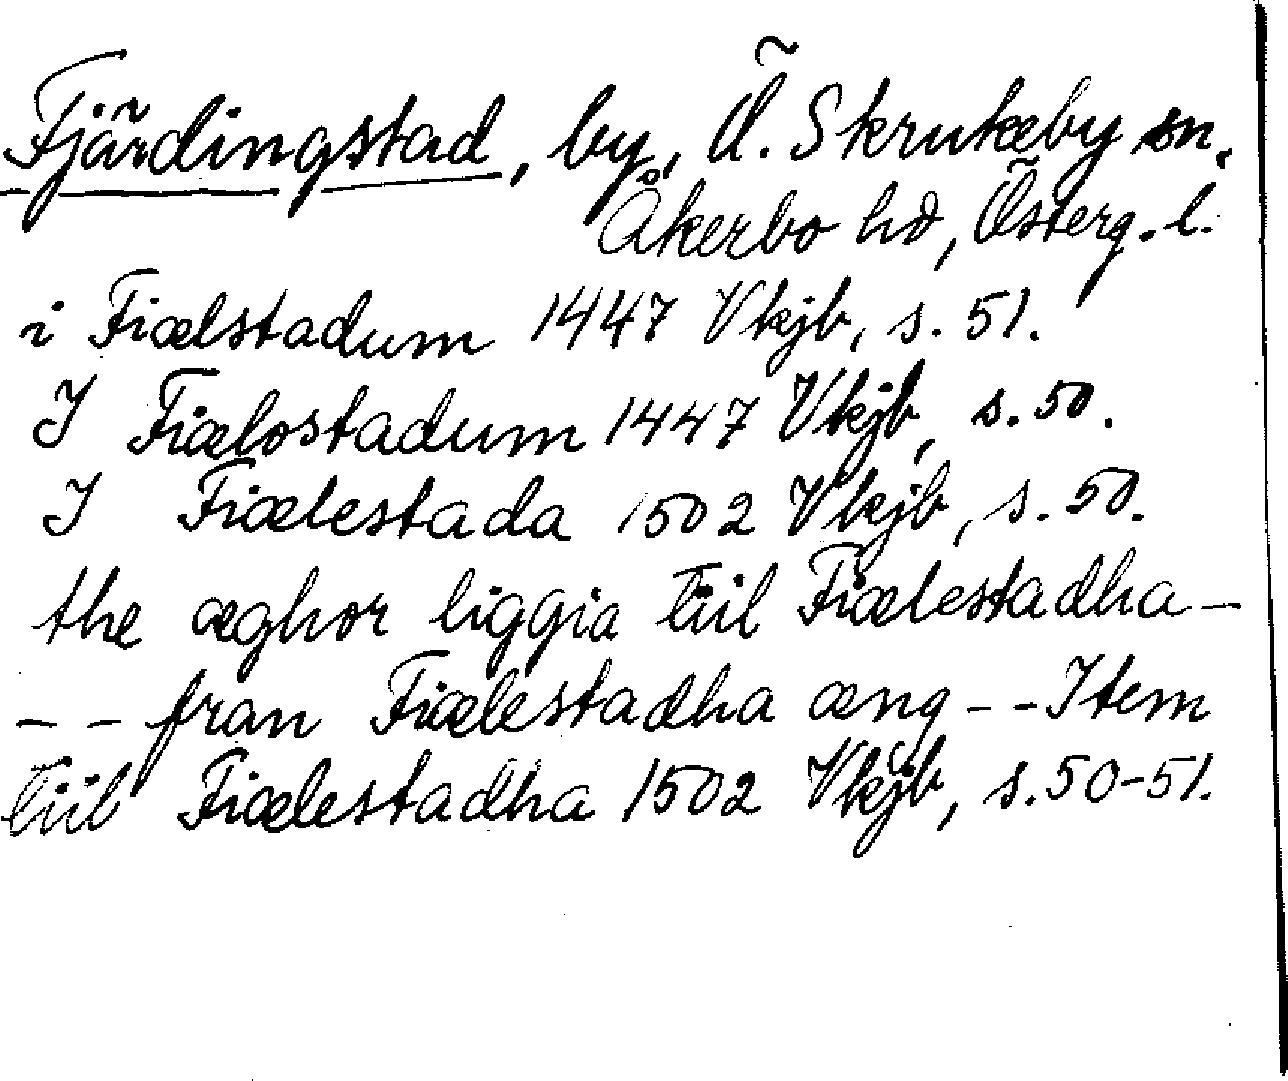 Fjärdingstad, by, Ö. Skrukeby sn,
Åkerbo hd, Österg. l.
i Fiælstadum 1447 Vkjb, s. 51.
I Fiælostadum 1447 Vkjb, s. 50.
I Fiælestada 1502 Vkjb, s. 50.
the æghor liggia tiil Fiælestadha –
– – fran Fiælestadha æng - - Item
tiil Fiælestadha 1502 Vkjb, s. 50-51.